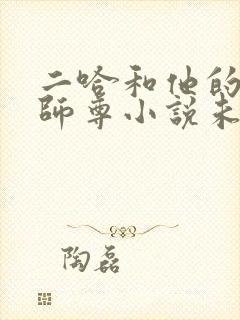 二哈和他的
師尊小說未
陶磊